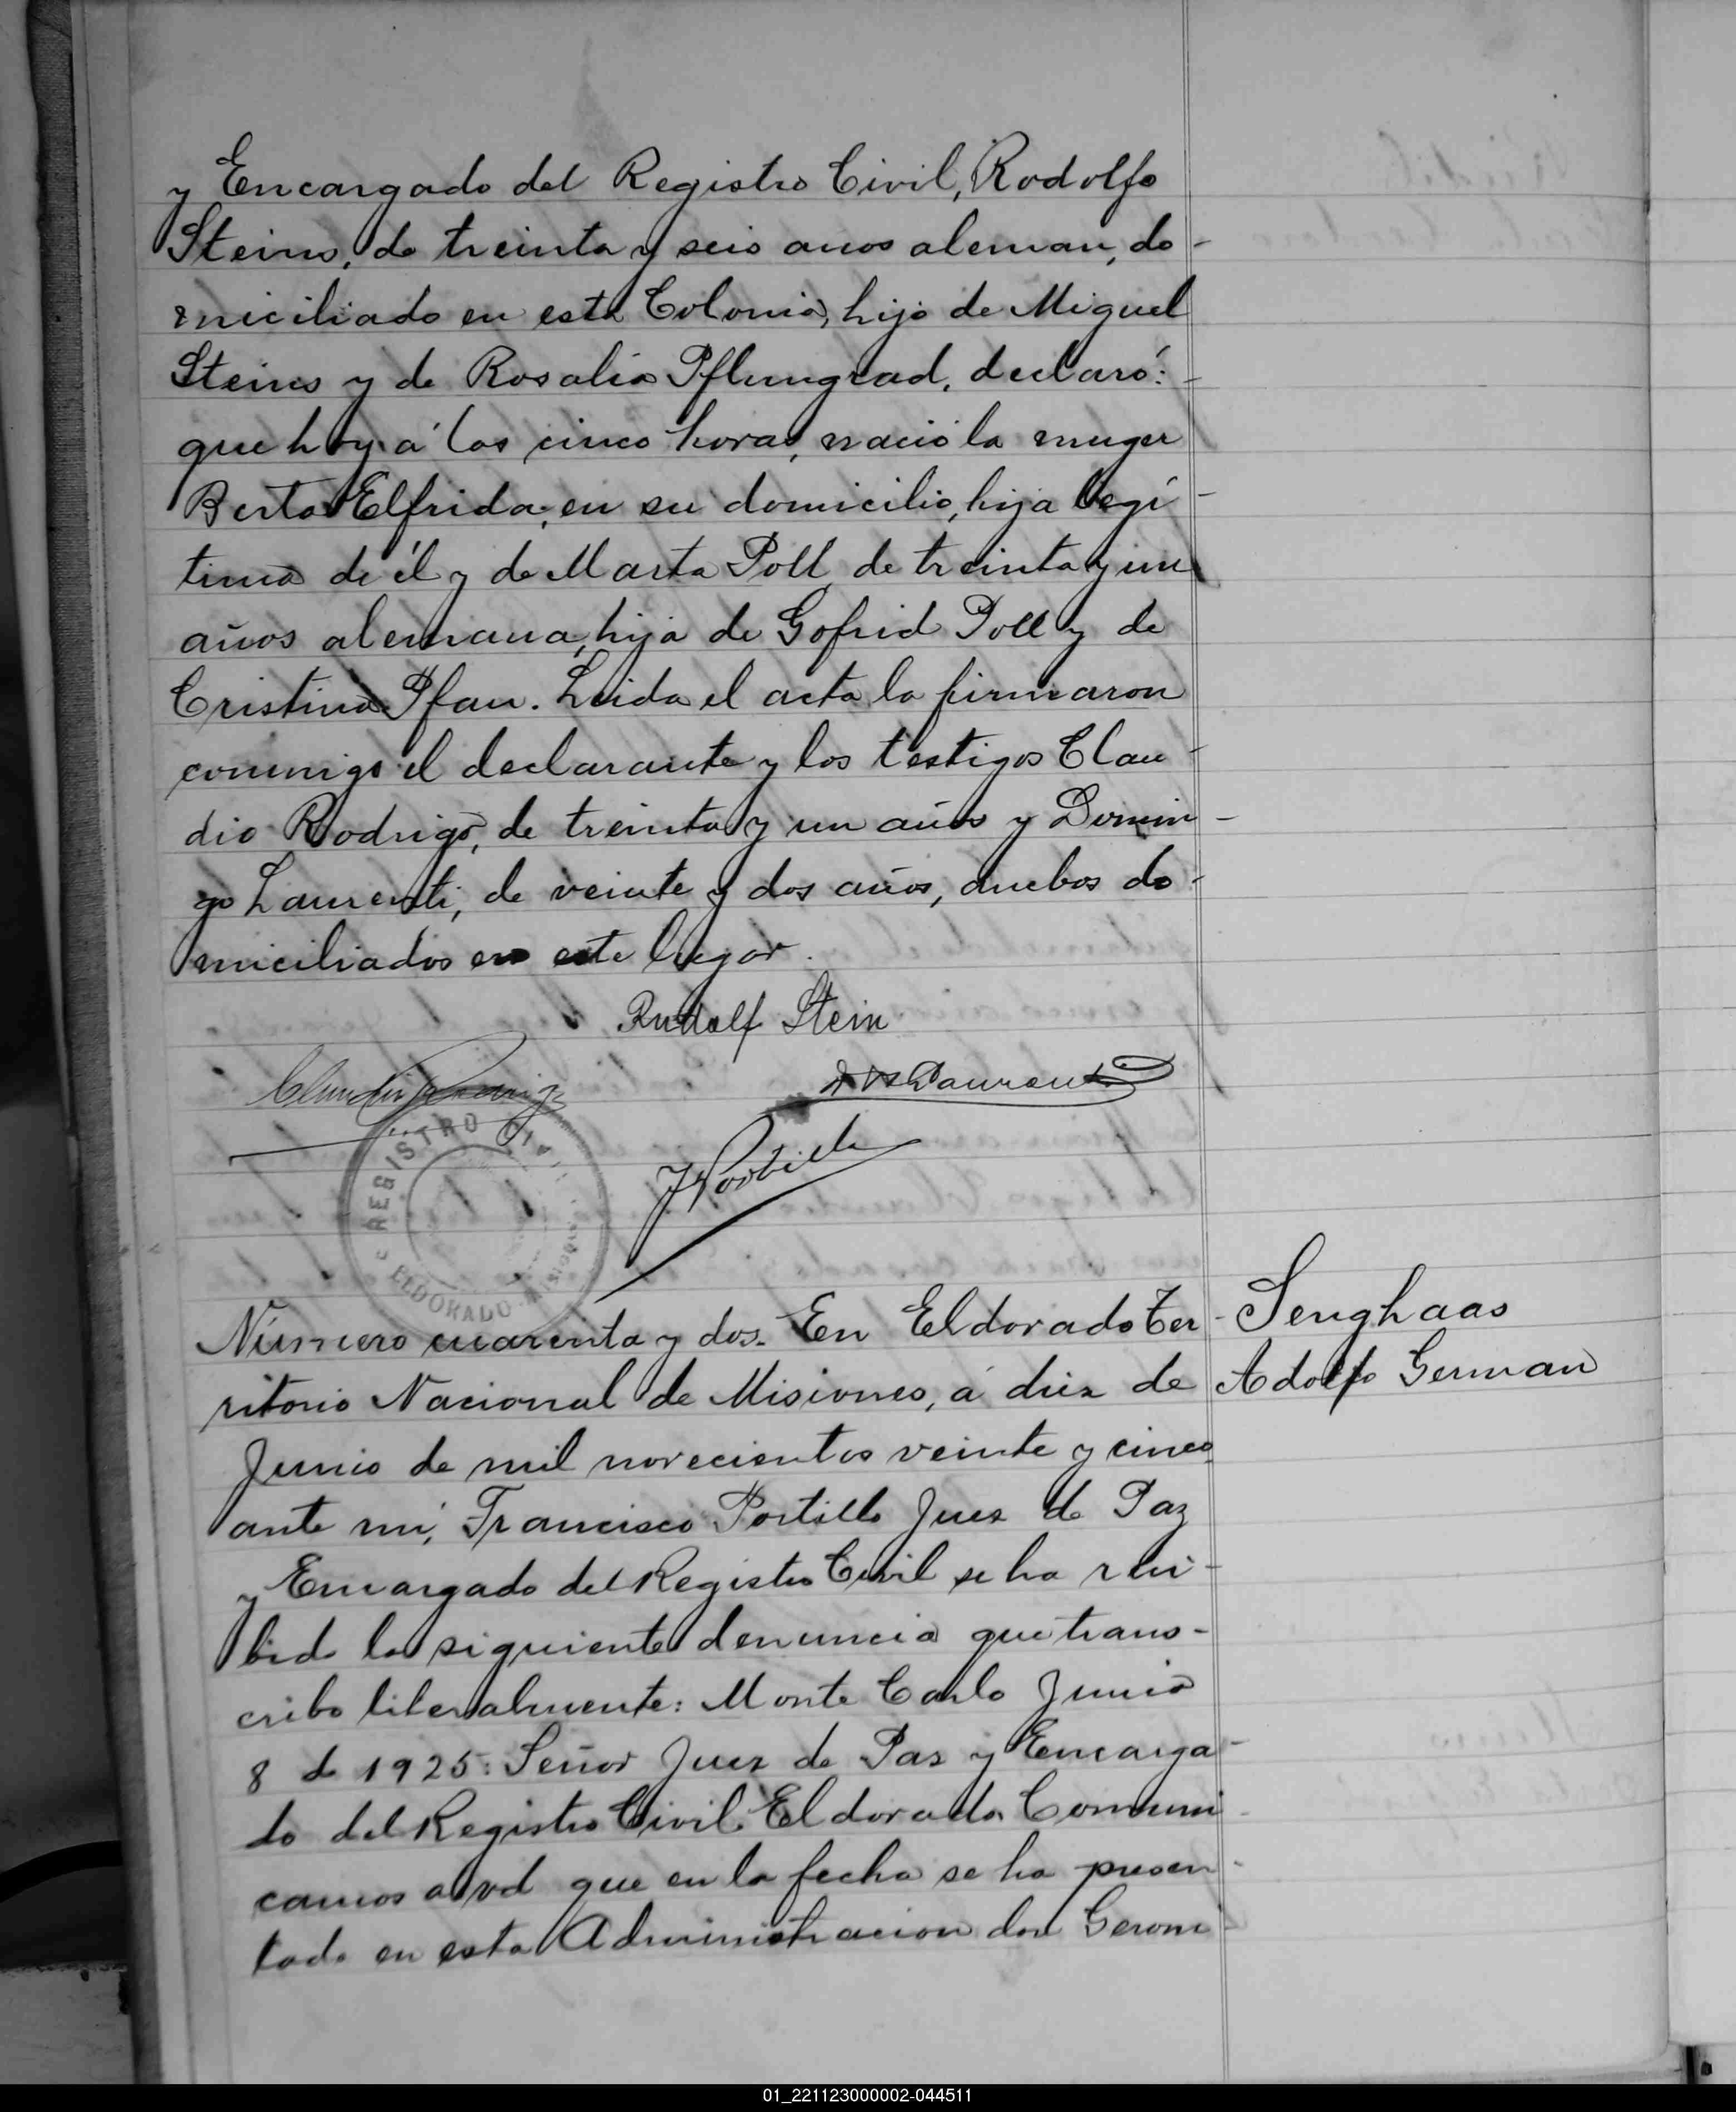 y Encargado del Registro Civil, Rodolfo
Steins, de treinta y seis anos aleman, do-
miciliado en esta Colonia, hijo de Miguel
Steins y de Rosalia Pflumgrad, declaró:-
que hoy á las cinco horas, nació la muger
Berta Elfrida, en su domicilio, hija legí-
tima de él y de Marta Poll, de treinta y un
años alemana, hija de Gofrid Poll y de
Cristina Pfau. Leida el acta la firmaron
conmigo el declarante y los testigos Clau-
dio Rodrigo, de treinta y un años y Domin-
go Laurenti, de veinte y dos años, ambos do-
miciliados en este lugar.
Rudolf Stein
Claudio Rodrigo
Laurenti
J Portillo
REGISTRO CIVIL
ELDORADO - Misiones
Número cuarenta y dos. En Eldorado Ter-
ritorio Nacional de Misiones, á diez de
Junio de mil novecientos veinte y cinco
ante mi, Francisco Portillo Juez de Paz
y Encargado del Registro Civil se ha reci-
bido la siguiente denuncia que trans-
cribo literalmente: Monte Carlo Junio
8 de 1925: Señor Juez de Paz y Encarga-
do del Registro Civil. Eldorado. Comuni-
camos a vd que en la fecha se ha presen-
tado en esta Administracion don Geroni-
Senghaas
Adolfo German
01_221123000002-044511